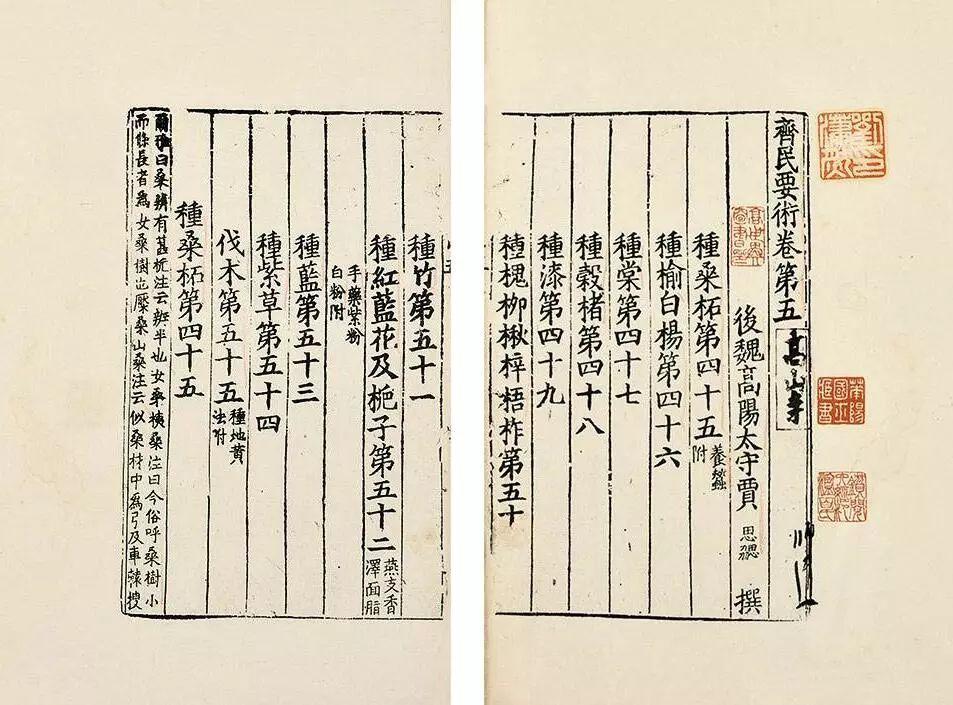 齊民要術卷第五
高山寺
後魏髙陽太守賈思勰撰
種桑柘第四十五養蠶附
種榆白楊第四十六
種棠第四十七
種榖楮第四十八
種漆第四十九
種槐柳楸梓梧柞第五十
種竹第五十一
種紅藍花及梔子第五十二燕支香澤面脂
手藥紫粉白粉附
種藍第五十三
種紫草第五十四
伐木第五十五種地黃法附
種桑柘第四十五
爾雅曰桑辨有葚梔注云辨半也女桑桋桑注曰今俗呼桑樹小
而條長者爲女桑樹也檿桑山桑注云似桑材中爲弓及車轅搜